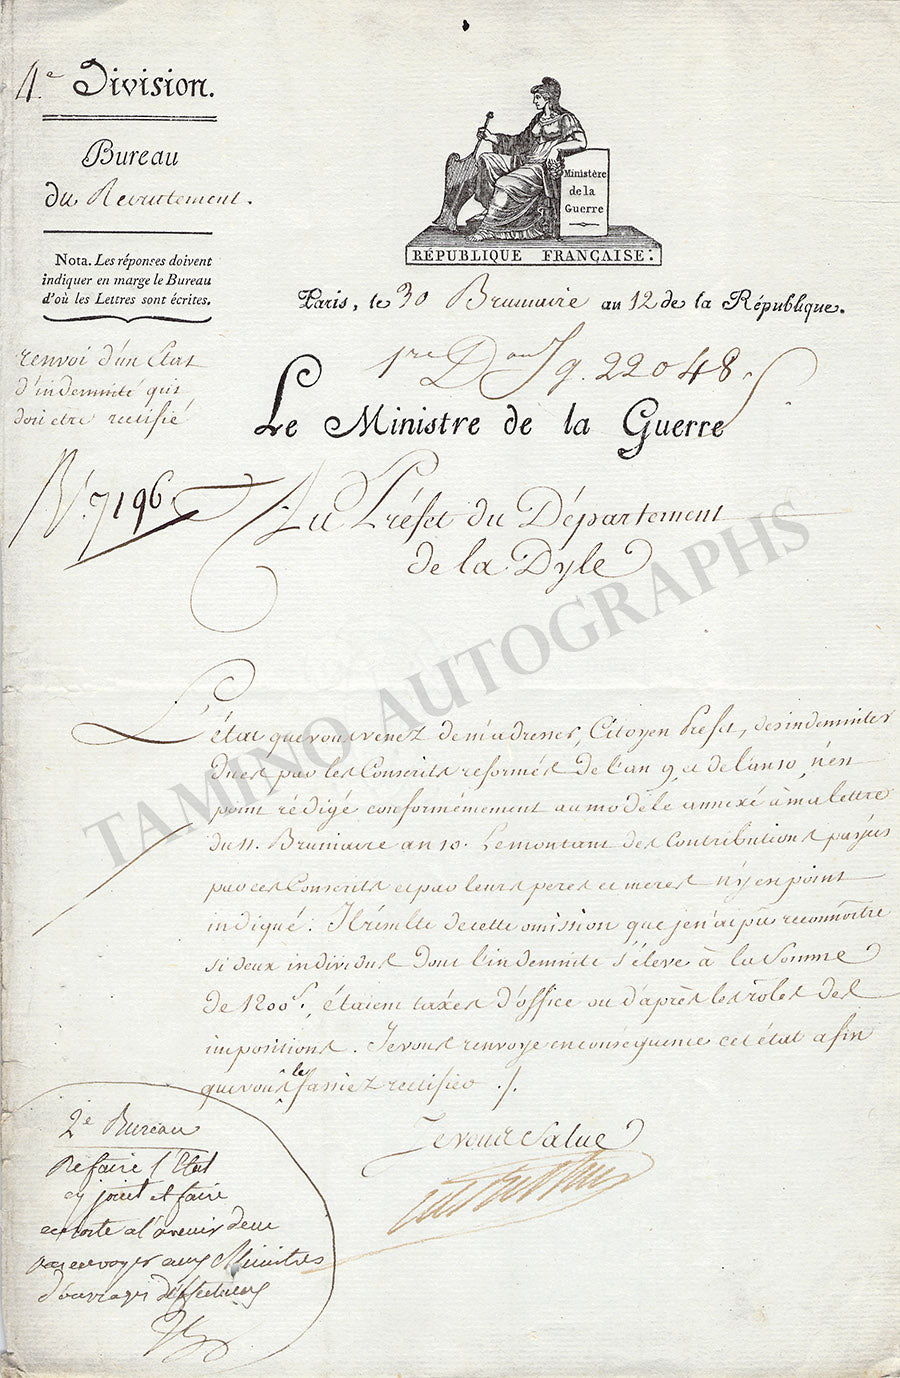 4.e Division.
Bureau
du Recrutement.
Nota. Les réponses doivent
indiquer en marge le Bureau
d'où les Lettres sont écrites.
Ministère
de la
Guerre
RÉPUBLIQUE FRANÇAISE.
Paris, le 30 Brumaire an 12 de la République.
renvoi d'un Etat
d'indemnité qui
doit etre rectifié
1re D.on 9. 22048.
Le Ministre de la Guerre
N.° 7196.
Au Préfet du Département
de la Dyle
L'état que vous venez de m'adresser, Citoyen Préfet, des indemnités
dues par les Conscrits reformés de l'an 9 et de l'an 10, n'est
point rédigé conformément au modèle annexé à ma lettre
du 11. Brumaire an 10. Le montant des Contributions payées
par ces Conscrits et par leurs peres et meres n'y est point
indiqué. Il résulte de cette omission que je n'ai pû reconnoître
si deux individus dont l'indemnité s'élève à la Somme
de 1200f, étaient taxés d'office ou d'après les rôles des
impositions. Je vous renvoye en conséquence cet état afin
que vous le fassiez rectifier ./.
Je vous Salue
2e Bureau
Refaire l'Etat
cy joint et faire
en sorte a l'avenir de ne
pas envoyer aux Ministres
d'ouvrages défectueux
TAMINO AUTOGRAPHS